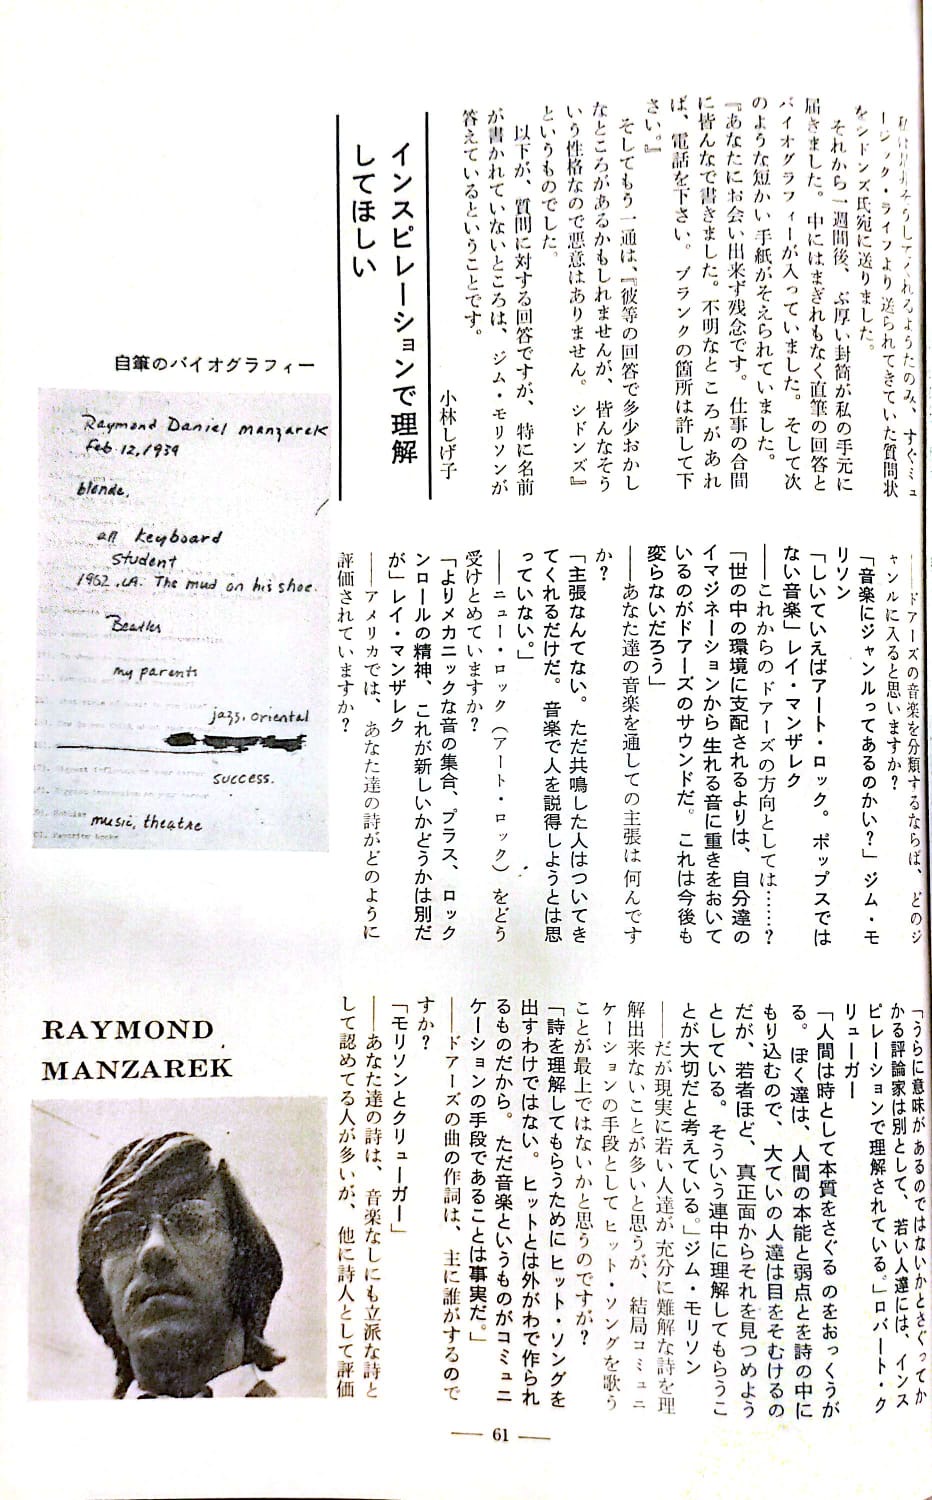 ージック・ライフより送られてきていた質問状
をシドンズ氏宛に送りました。
それから一週間後、ぶ厚い封筒が私の手元に
届きました。中にはまぎれもなく直筆の回答と
バイオグラフィーが入っていました。そして次
のような短かい手紙がそえられていました。
『あなたにお会い出来ず残念です。仕事の合間
に皆んなで書きました。不明なところがあれ
ば、電話を下さい。ブランクの箇所は許して下
さい。』
そしてもう一通は、『彼等の回答で多少おかし
なところがあるかもしれませんが、皆んなそう
いう性格なので悪意はありません。シドンズ』
というものでした。
以下が、質問に対する回答ですが、特に名前
が書かれていないところは、ジム・モリソンが
答えているということです。
小林しげ子
インスピレーションで理解
してほしい
自筆のバイオグラフィー
Raymond Daniel Manzarek
Feb. 12, 1939
blonde.
all keyboard
student
1962. LA. The mud on his shoe.
Beatles
my parents
jazz, oriental
success.
music, theatre
――ドアーズの音楽を分類するならば、どのジ
ャンルに入ると思いますか？
「音楽にジャンルってあるのかい？」ジム・モ
リソン
「しいていえばアート・ロック。ポップスでは
ない音楽」レイ・マンザレク
――これからのドアーズの方向としては……？
「世の中の環境に支配されるよりは、自分達の
イマジネーションから生れる音に重きをおいて
いるのがドアーズのサウンドだ。これは今後も
変らないだろう」
――あなた達の音楽を通しての主張は何んです
か？
「主張なんてない。ただ共鳴した人はついてき
てくれるだけだ。音楽で人を説得しようとは思
っていない。」
――ニュー・ロック（アート・ロック）をどう
受けとめていますか？
「よりメカニックな音の集合、プラス、ロック
ンロールの精神、これが新しいかどうかは別だ
が」レイ・マンザレク
――アメリカでは、あなた達の詩がどのように
評価されていますか？
「うらに意味があるのではないかとさぐってか
かる評論家は別として、若い人達には、インス
ピレーションで理解されている。」ロバート・ク
リューガー
「人間は時として本質をさぐるのをおっくうが
る。ぼく達は、人間の本能と弱点とを詩の中に
もり込むので、大ていの人達は目をそむけるの
だが、若者ほど、真正面からそれを見つめよう
としている。そういう連中に理解してもらうこ
とが大切だと考えている。」ジム・モリソン
――だが現実に若い人達が充分に難解な詩を理
解出来ないことが多いと思うが、結局コミュニ
ケーションの手段としてヒット・ソングを歌う
ことが最上ではないかと思うのですが？
「詩を理解してもらうためにヒット・ソングを
出すわけではない。ヒットとは外がわで作られ
るものだから。ただ音楽というものがコミュニ
ケーションの手段であることは事実だ。」
――ドアーズの曲の作詞は、主に誰がするので
すか？
「モリソンとクリューガー」
――あなた達の詩は、音楽なしにも立派な詩と
して認めてる人が多いが、他に詩人として評価
RAYMOND
MANZAREK
— 61 —